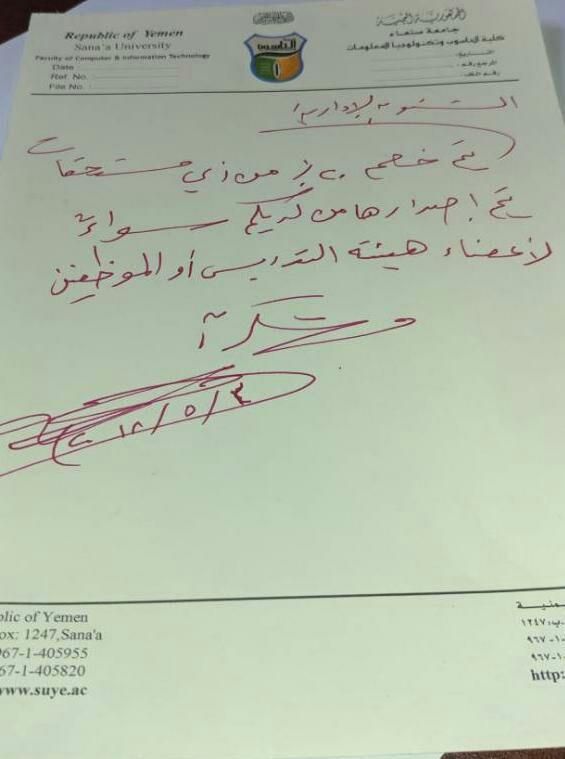 Republic of Yemen
Sana'a University
Faculty of Computer & Information Technology
Date
Ref. No.
File No.
الجمهورية اليمنية
جامعة صنعاء
كلية الحاسوب وتكنولوجيا المعلومات
التاريخ:
المرجع رقم:
رقم الملف:
الحاسوب
يتم خصم ٢٠٪ من أي مستحقات
يتم إصدارها من لديكم سواءً
لأعضاء هيئة التدريس أو الموظفين
وشكراً
٢٠١٨/٥/٣
blic of Yemen
ox: 1247,Sana'a
967-1-405955
67-1-405820
www.suye.ac
منية
ب: ١٢٤٧
٩٦٧-١-
٩٦٧-١-
http: